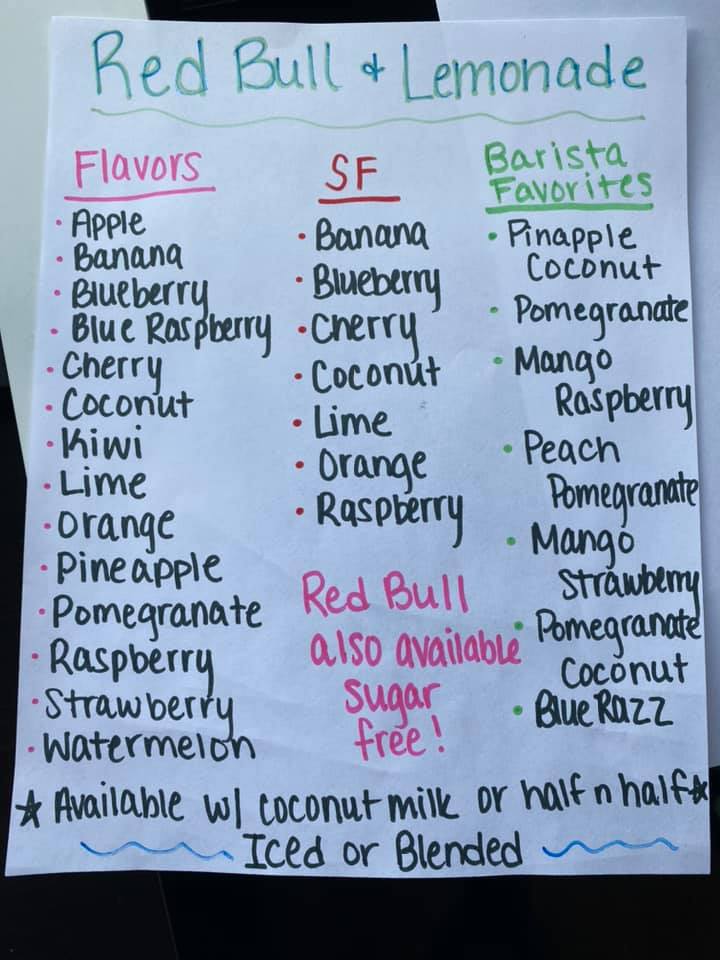 Red Bull & Lemonade
Flavors
• Apple
• Banana
• Blueberry
• Blue Raspberry
• Cherry
• Coconut
• Kiwi
• Lime
• Orange
• Pineapple
• Pomegranate
• Raspberry
• Strawberry
• Watermelon
SF
• Banana
• Blueberry
• Cherry
• Coconut
• Lime
• Orange
• Raspberry
Red Bull
also available
sugar
free!
Barista
Favorites
• Pinapple
Coconut
• Pomegranate
• Mango
Raspberry
• Peach
Pomegranate
• Mango
Strawberry
• Pomegranate
Coconut
• Blue Razz
★ Available w/ coconut milk or half n half ★
Iced or Blended